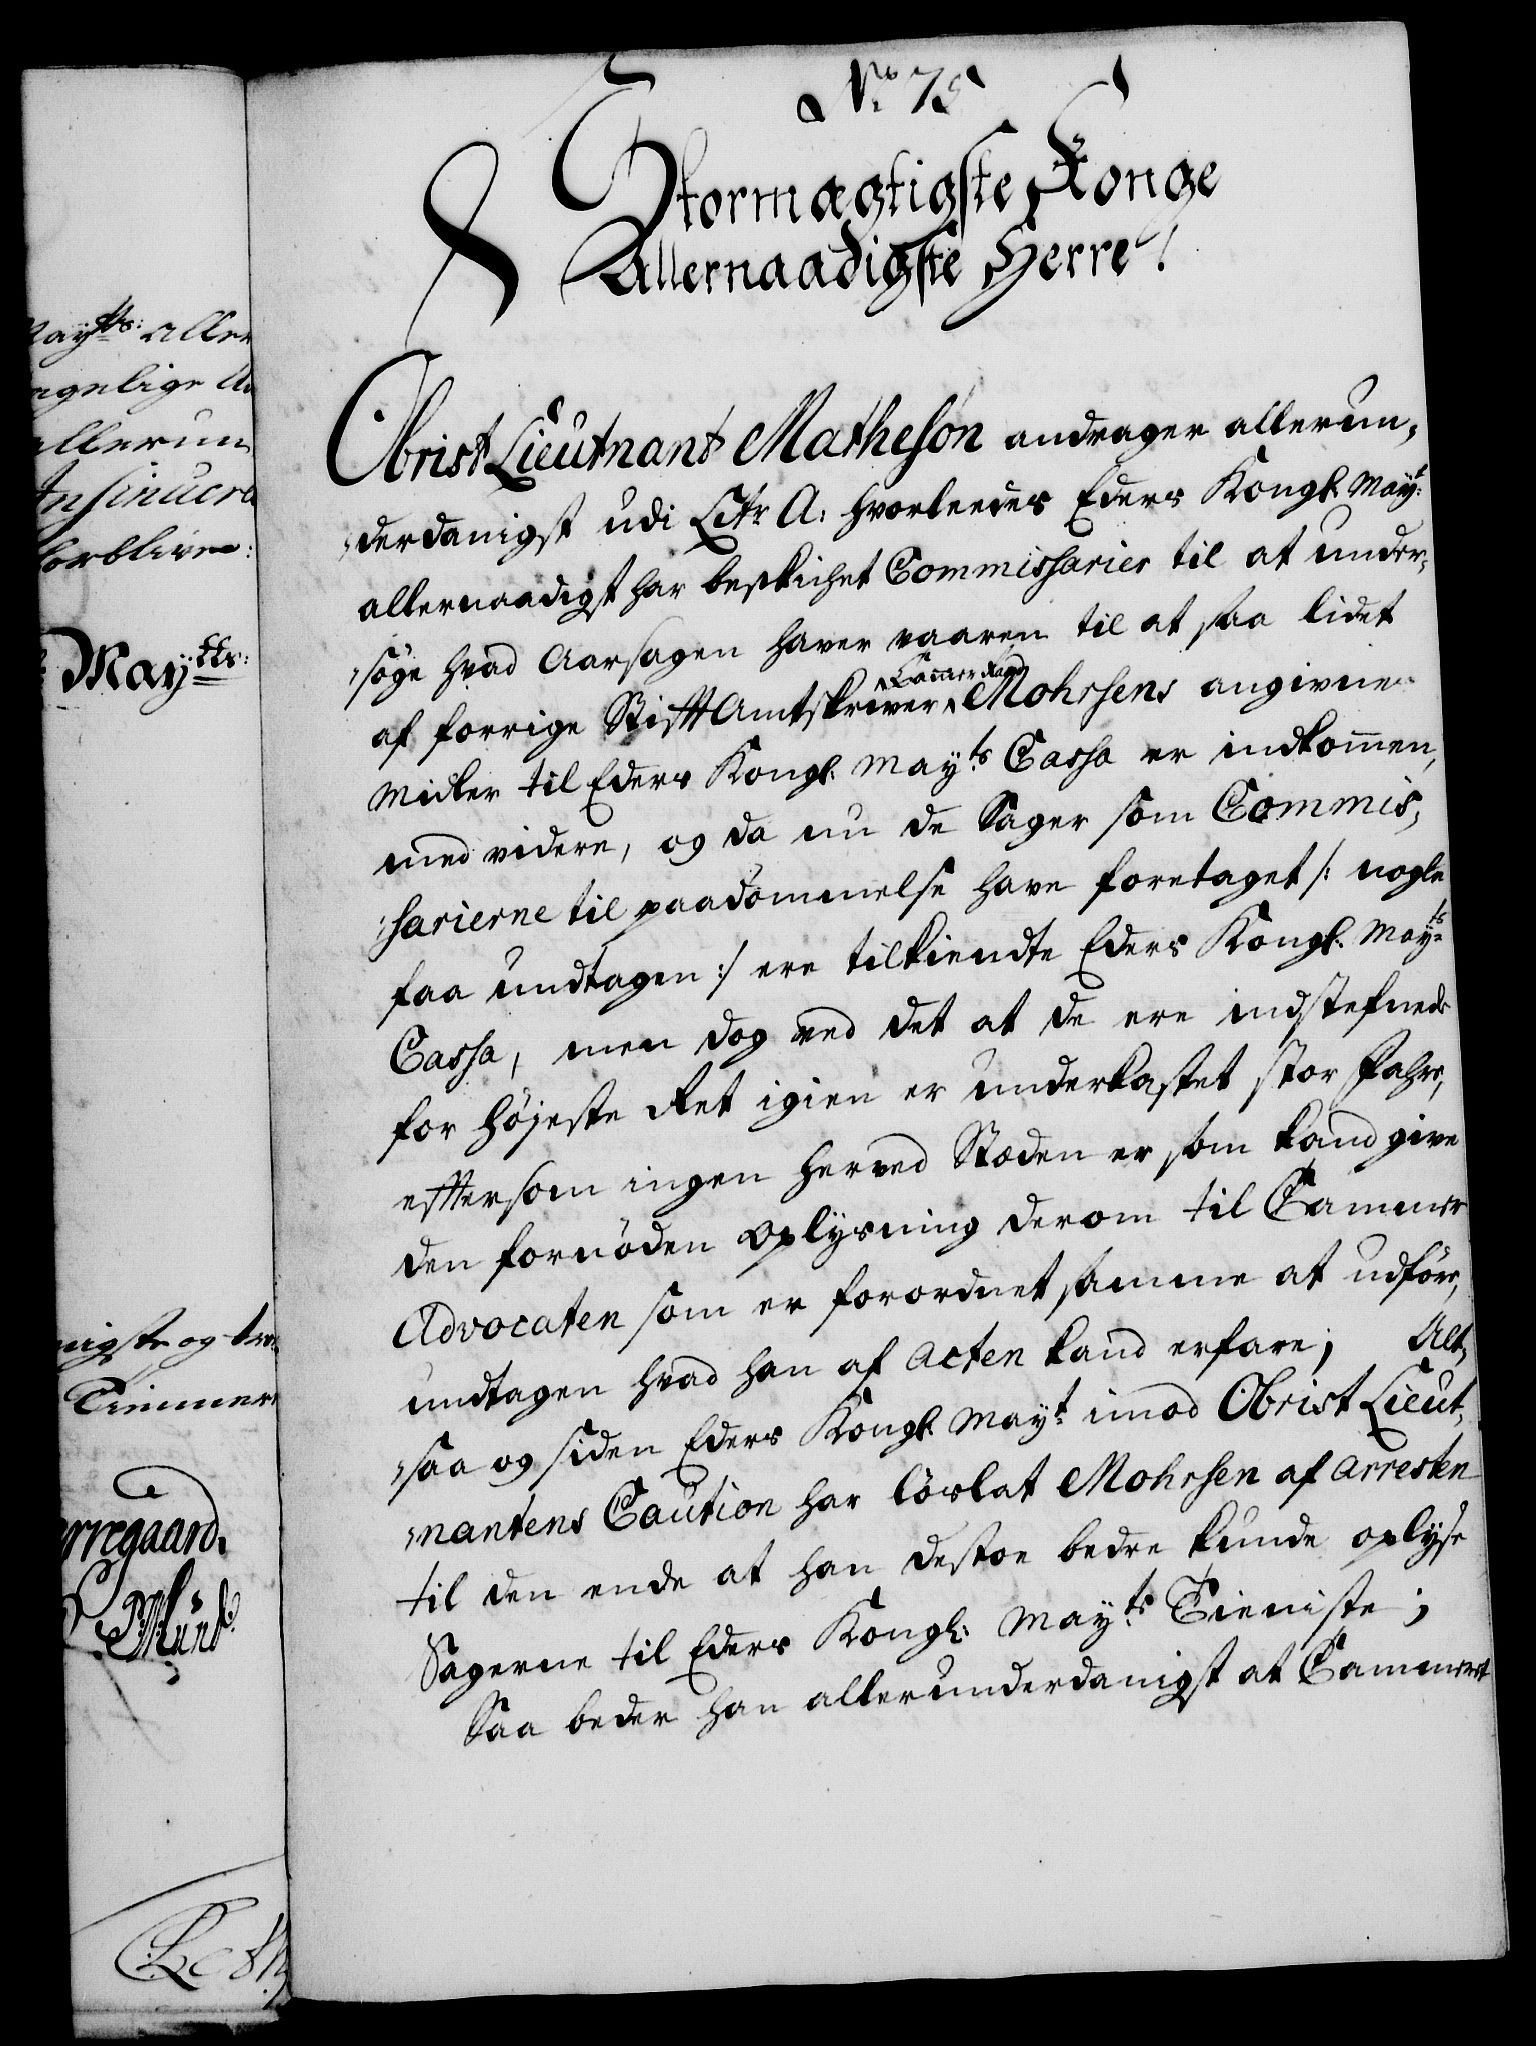 No 75
Stormægtigste Konge
Allernaadigste Herre!
Obrist Lieutnant Matheson andrager allerun,
,derdanigst udi Litr A. hvorleedes Eders Kongl. Mayt:
allernaadigst har beskichet Commissarier til at under,
,søge hvad Aarsagen haver vaaren til at saa lidet
af forrige StifftAmtskriver Cammer Raad Mohrsens angivne
Midler til Eders Kongl. Mayts Cassa er indkommen,
med videre, og da nu de Sager som Commis,
,sarierne til paadømmelse have foretaget /: nogle
faa undtagen :/ ere tilkiendte Eders Kongl. Mayts
Cassa, men dog ved det at de ere indstefnede
for Høyeste Ret igien er underkastet stor fahre,
efftersom ingen herved Stæden er som kand give
den fornøden Oplysning derom til Cammer
Advocaten som er forordnet samme at udføre,
undtagen hvad han af Acten kand erfare; Alt,
,saa og siden Eders Kongl. Mayt imod Obrist Lieut,
,nantens Caution har løslat Mohrsen af Arresten
til den ende at han destoe bedre kunde oplyse
Sagerne til Eders Kongl: Mayts Tieniste;
Saa beder han allerunderdanigst at Cammeret
Mayts: aller
allerun
Insinuera
forblive:
Mayts:
nigste og tro
Timmer
rregaard.
Münt